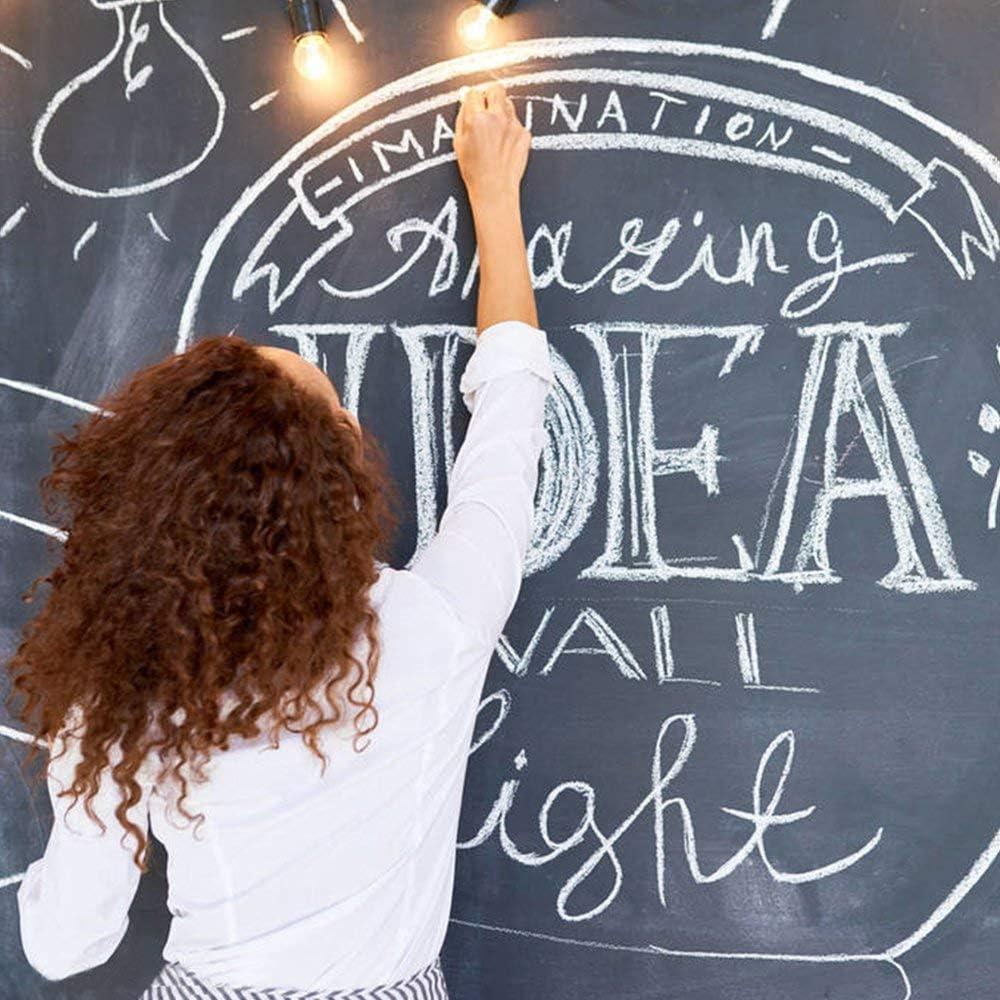 IMAGINATION
Amazing
IDEA
WALL
light